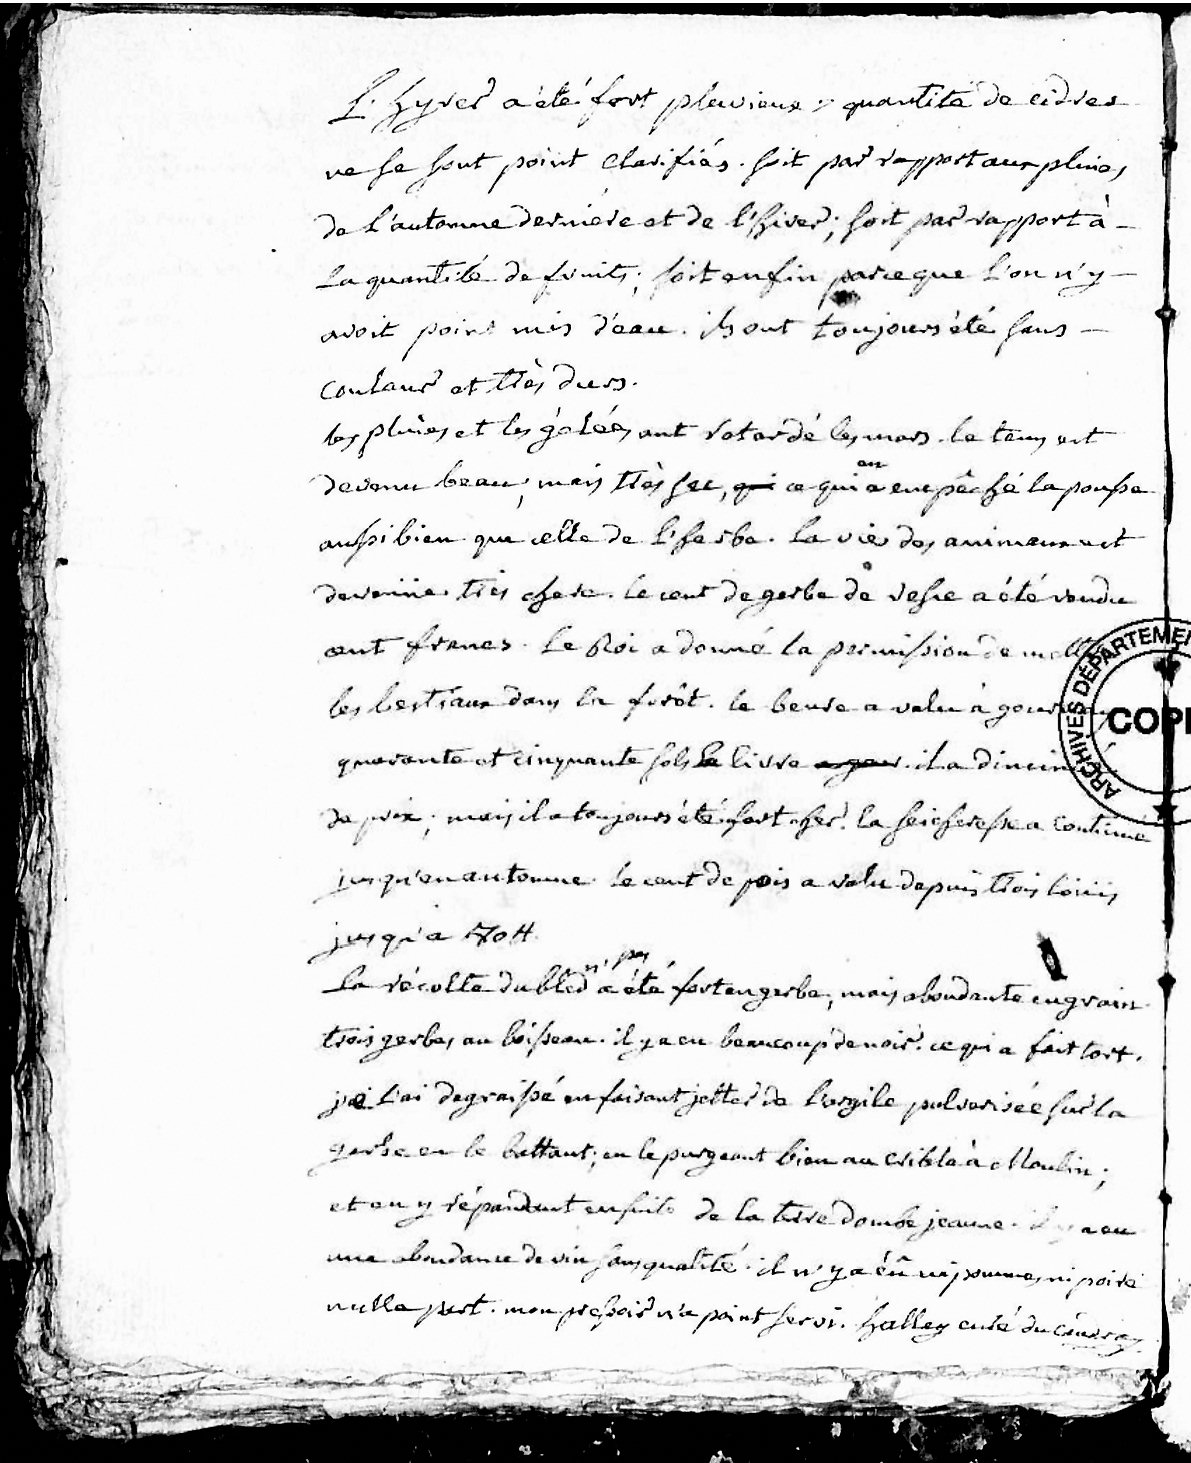 L'hyver a été fort pluvieux ; quantité de cidres
ne se sont point clarifiés. soit par rapport aux pluies
de l'automne derniere et de l'hiver ; soit par rapport à
la quantité de fruits ; soit enfin parceque l'on n'y
avoit point mis d'eau. ils ont toujours été sans
couleur et très durs.
les pluies et les gélées ont retardé les mars. le tems est
devenu beau ; mais très sec, qui ce qui en a empêché la pousse
aussi bien que celle de l'herbe. la vie des animaux est
devenüe très chere. le cent de gerbe de vesce a été vendu
cent francs. Le Roi a donné la permission de mettre
les bestiaux dans la forêt. le beure a valu à gournay
quarante et cinquante sols la livre. il a diminué
de prix ; mais il a toujours été fort cher. la seicheresse a continué
jusqu'en automne. le cent de pois a valu depuis trois loüis
jusqu'a 80 ₶.
La récolte du bled n'a pas été fort en gerbe, mais abondante en grain
trois gerbes au boisseau. il y a eu beaucoup de noir. ce qui a fait tort.
je l'ai degraissé en faisant jetter de l'argile pulverisée sur la
gerbe en le battant ; en le purgeant bien au crible à Moulin ;
et en y répandant ensuite de la terre d'ombe jeaune. il y a eu
une abondance de vin sans qualité. il n'y a eû ni pommes, ni poire
nulle part. mon pressoir n'a point servi. halley curé du
ARCHIVES DÉPARTEMEN
COPI